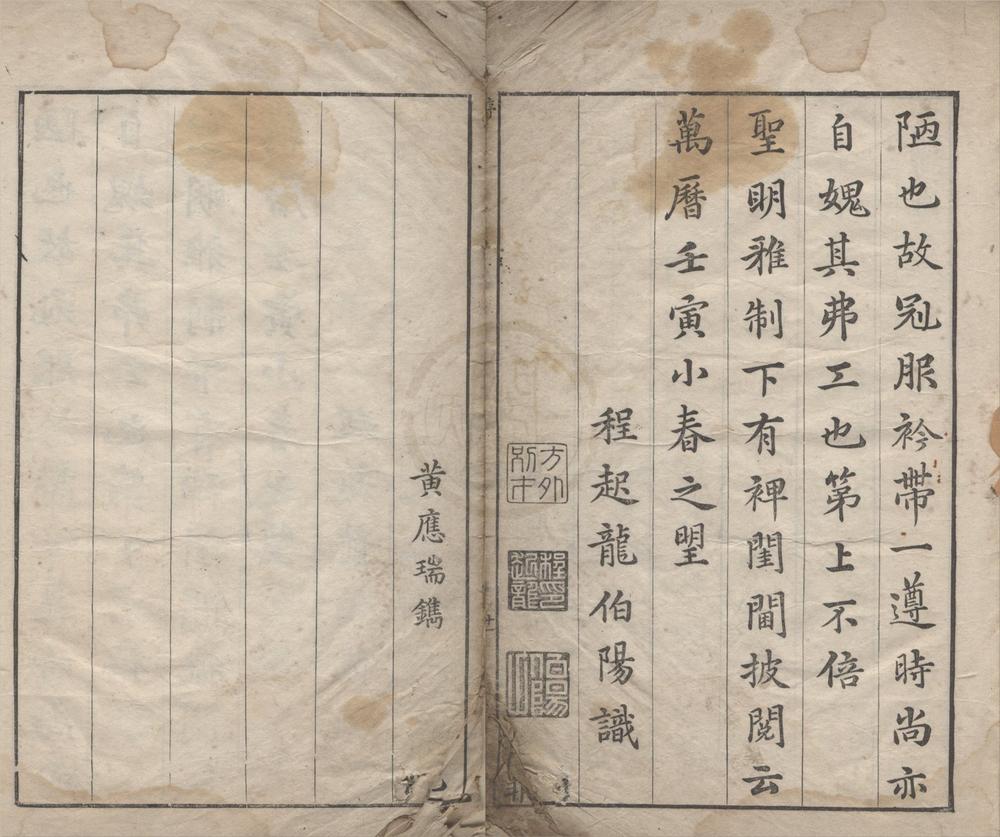 陋也故冠服衿帶一遵時尚亦
自媿其弗工也第上不倍
聖明雅制下有裨閨閫披閱云
萬曆壬寅小春之朢
程起龍伯陽識
方外
程印起龍
伯陽
黃應瑞鐫